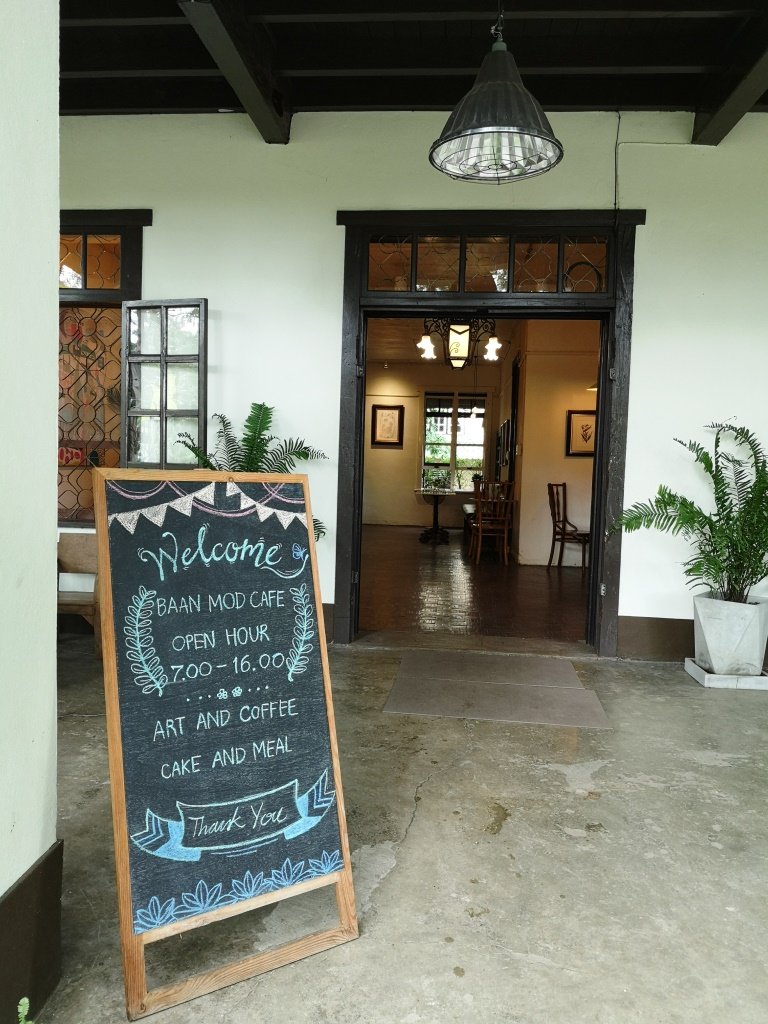 Welcome
BAAN MOD CAFE
OPEN HOUR
7.00-16.00
ART AND COFFEE
CAKE AND MEAL
Thank You